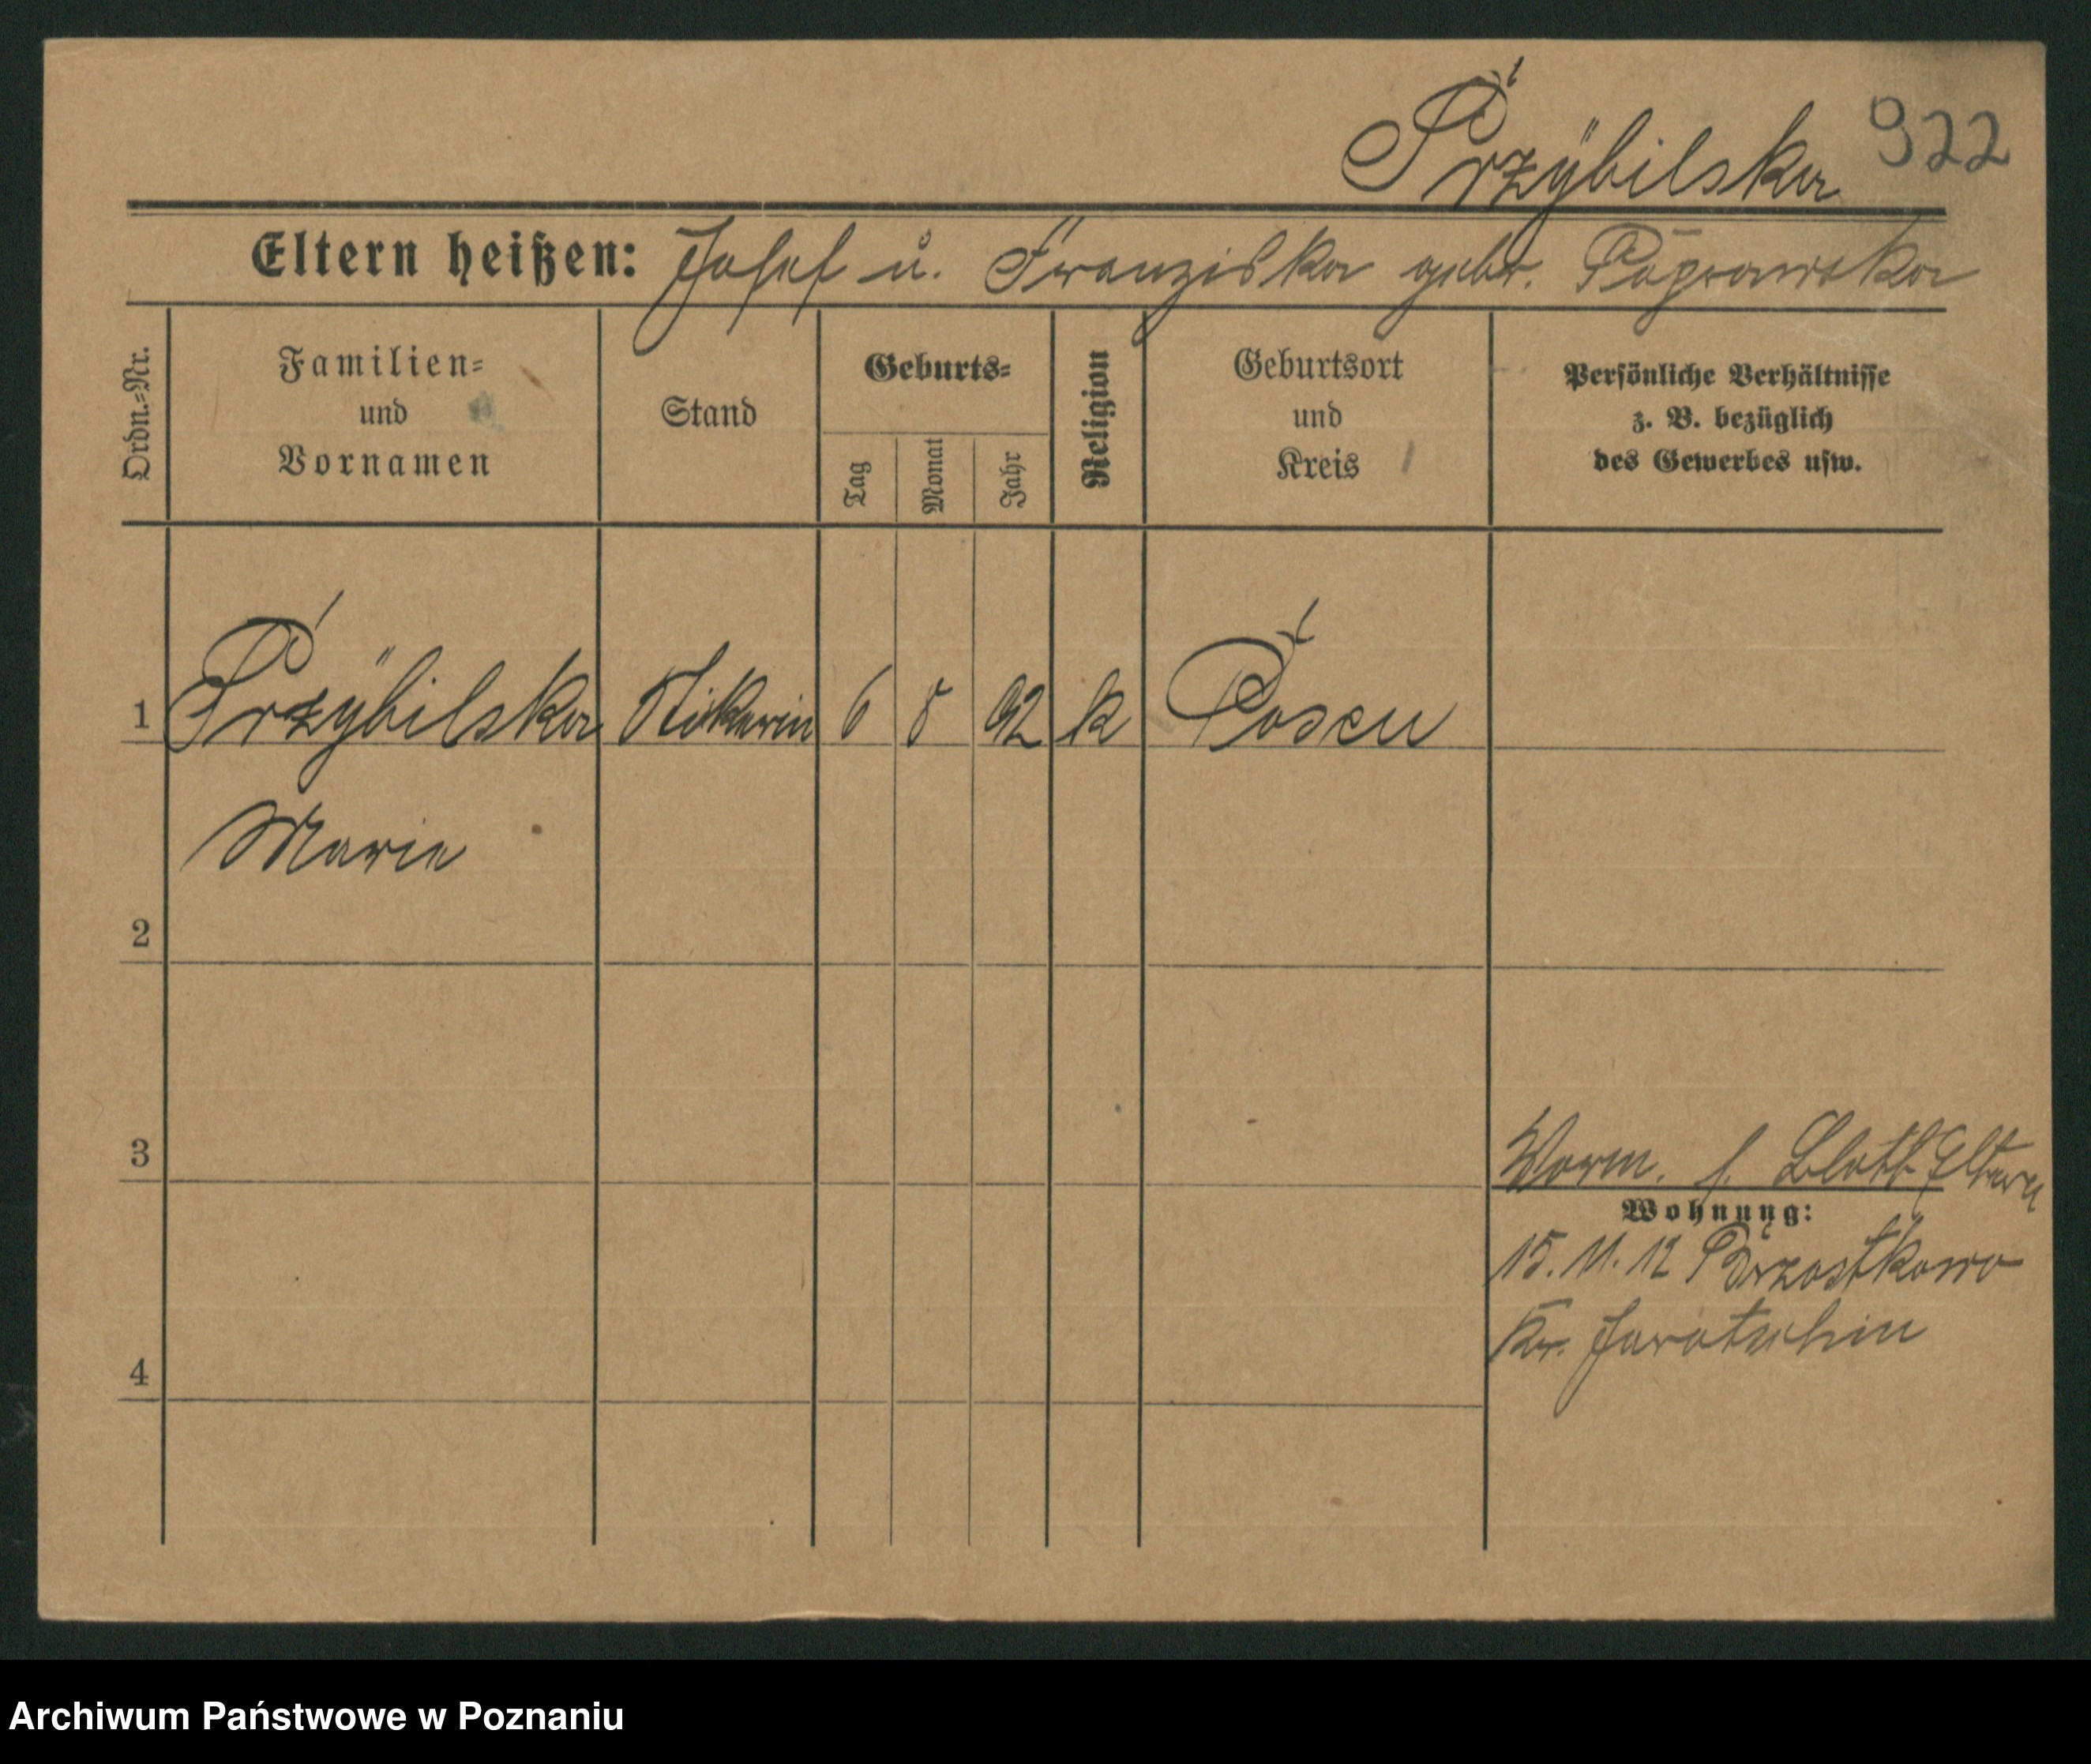 Przÿbilska 922
Eltern heißen: Josef u. Franziska gebr. Poprawska
Ordn.=Nr.
Familien=
und
Vornamen
Stand
Geburts=
Tag
Monat
Jahr
Religion
Geburtsort
und
Kreis
Persönliche Verhältnisse
z. B. bezüglich
des Gewerbes usw.
1 Przÿbilska 6 8 92 k Posen
Marie
2
3
Vorm. s. Blatt Eltern
Wohnung:
15. 11. 12
Kr. Jarotschin
4
Archiwum Państwowe w Poznaniu